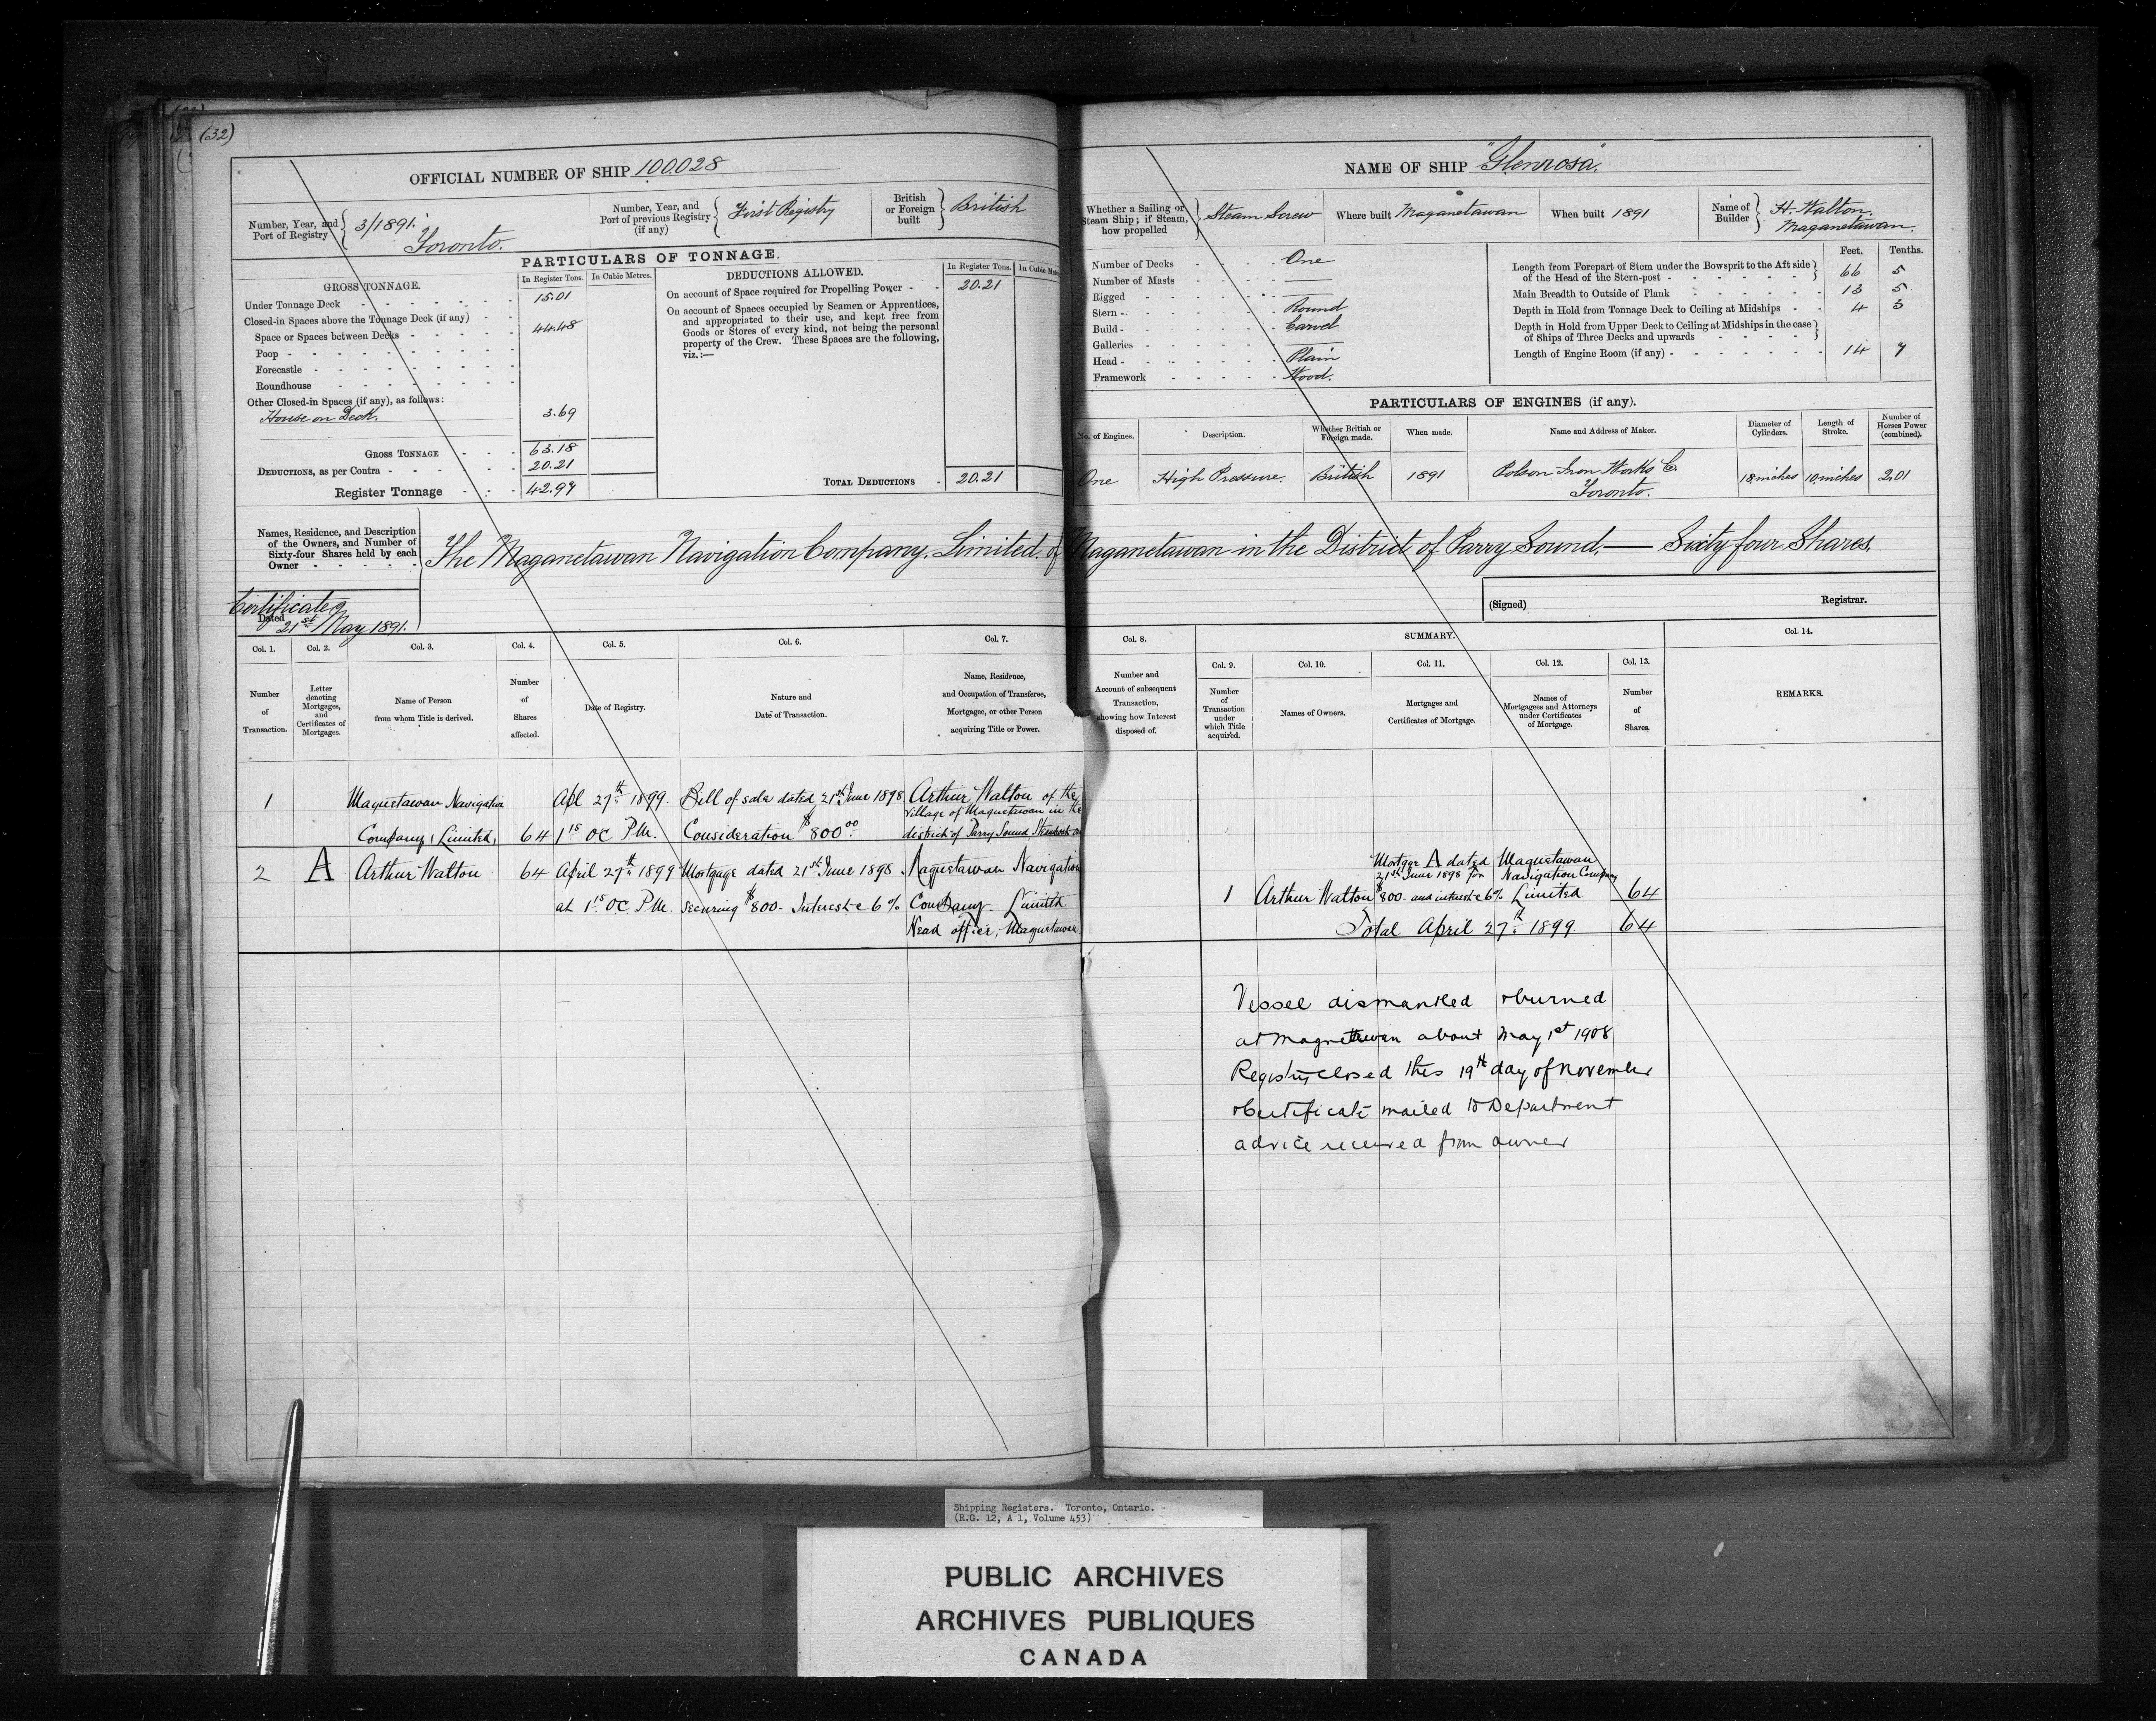 (32)
OFFICIAL NUMBER OF SHIP 100.028
Number, Year, and Port of Registry } 3/1891. Toronto.
Number, Year, and Port of previous Registry (if any) { First Registry
British or Foreign built } British
PARTICULARS OF TONNAGE.
GROSS TONNAGE. In Register Tons. In Cubic Metres.
Under Tonnage Deck 15.01
Closed-in Spaces above the Tonnage Deck (if any)
Space or Spaces between Decks 44.48
Poop
Forecastle
Roundhouse
Other Closed-in Spaces (if any), as follows:
House on Deck. 3.69
GROSS TONNAGE 63.18
DEDUCTIONS, as per Contra 20.21
Register Tonnage 42.97
DEDUCTIONS ALLOWED. In Register Tons. In Cubic
On account of Space required for Propelling Power 20.21
On account of Spaces occupied by Seamen or Apprentices,
and appropriated to their use, and kept free from
Goods or Stores of every kind, not being the personal
property of the Crew. These Spaces are the following,
viz.:—
TOTAL DEDUCTIONS 20.21
NAME OF SHIP "Glenrosa".
Whether a Sailing or Steam Ship; if Steam, how propelled } Steam Screw
Where built Maganetawan
When built 1891
Name of Builder } H. Walton, Maganetawan.
Number of Decks One
Number of Masts ——
Rigged ——
Stern Round
Build Carvel
Galleries ——
Head Plain
Framework Wood.
Feet. Tenths.
Length from Forepart of Stem under the Bowsprit to the Aft side
of the Head of the Stern-post 66 5
Main Breadth to Outside of Plank 13 5
Depth in Hold from Tonnage Deck to Ceiling at Midships 4 3
Depth in Hold from Upper Deck to Ceiling at Midships in the case
of Ships of Three Decks and upwards
Length of Engine Room (if any) 14 7
PARTICULARS OF ENGINES (if any).
No. of Engines. Description. Whether British or Foreign made. When made. Name and Address of Maker. Diameter of Cylinders. Length of Stroke. Number of Horses Power (combined).
One High Pressure. British 1891 Polson Iron Works Co. Toronto. 18 inches 10 inches 2.01
Names, Residence, and Description
of the Owners, and Number of
Sixty-four Shares held by each
Owner
The Maganetawan Navigation Company, Limited, of Maganetawan in the District of Parry Sound,— Sixty four Shares.
Certificate
Dated 21st May 1891.
(Signed) Registrar.
Col. 1. Col. 2. Col. 3. Col. 4. Col. 5. Col. 6. Col. 7. Col. 8. SUMMARY. Col. 14.
Col. 9. Col. 10. Col. 11. Col. 12. Col. 13.
Number of Transaction.
Letter denoting Mortgages, and Certificates of Mortgages.
Name of Person from whom Title is derived.
Number of Shares affected.
Date of Registry.
Nature and Date of Transaction.
Name, Residence, and Occupation of Transferee, Mortgagee, or other Person acquiring Title or Power.
Number and Account of subsequent Transaction, showing how Interest disposed of.
Number of Transaction under which Title acquired.
Names of Owners.
Mortgages and Certificates of Mortgage.
Names of Mortgagees and Attorneys under Certificates of Mortgage.
Number of Shares.
REMARKS.
1 Magnetawan Navigation Apl 27th 1899. Bill of sale dated 21st June 1898 Arthur Walton of the
Village of Magnetawan in the
Company, Limited, 64 1 15 OC P.M. Consideration $800 00 district of Parry Sound
2 A Arthur Walton 64 April 27th 1899 Mortgage dated 21st June 1898 Magnetawan Navigation
at 1 15 OC P.M. securing $800- Interest @ 6% Company Limited
Head office, Magnetawan
Mortgage A dated Magnetawan
21st June 1898 for Navigation Company
1 Arthur Walton $800- and interest @ 6% Limited 64
Total April 27th 1899. 64
Vessel dismantled & burned
at Magnettewan about May 1st 1908
Registry closed this 19th day of November
& Certificate mailed to Department
advice received from owner
Shipping Registers. Toronto, Ontario.
(R.G. 12, A 1, Volume 453)
PUBLIC ARCHIVES
ARCHIVES PUBLIQUES
CANADA